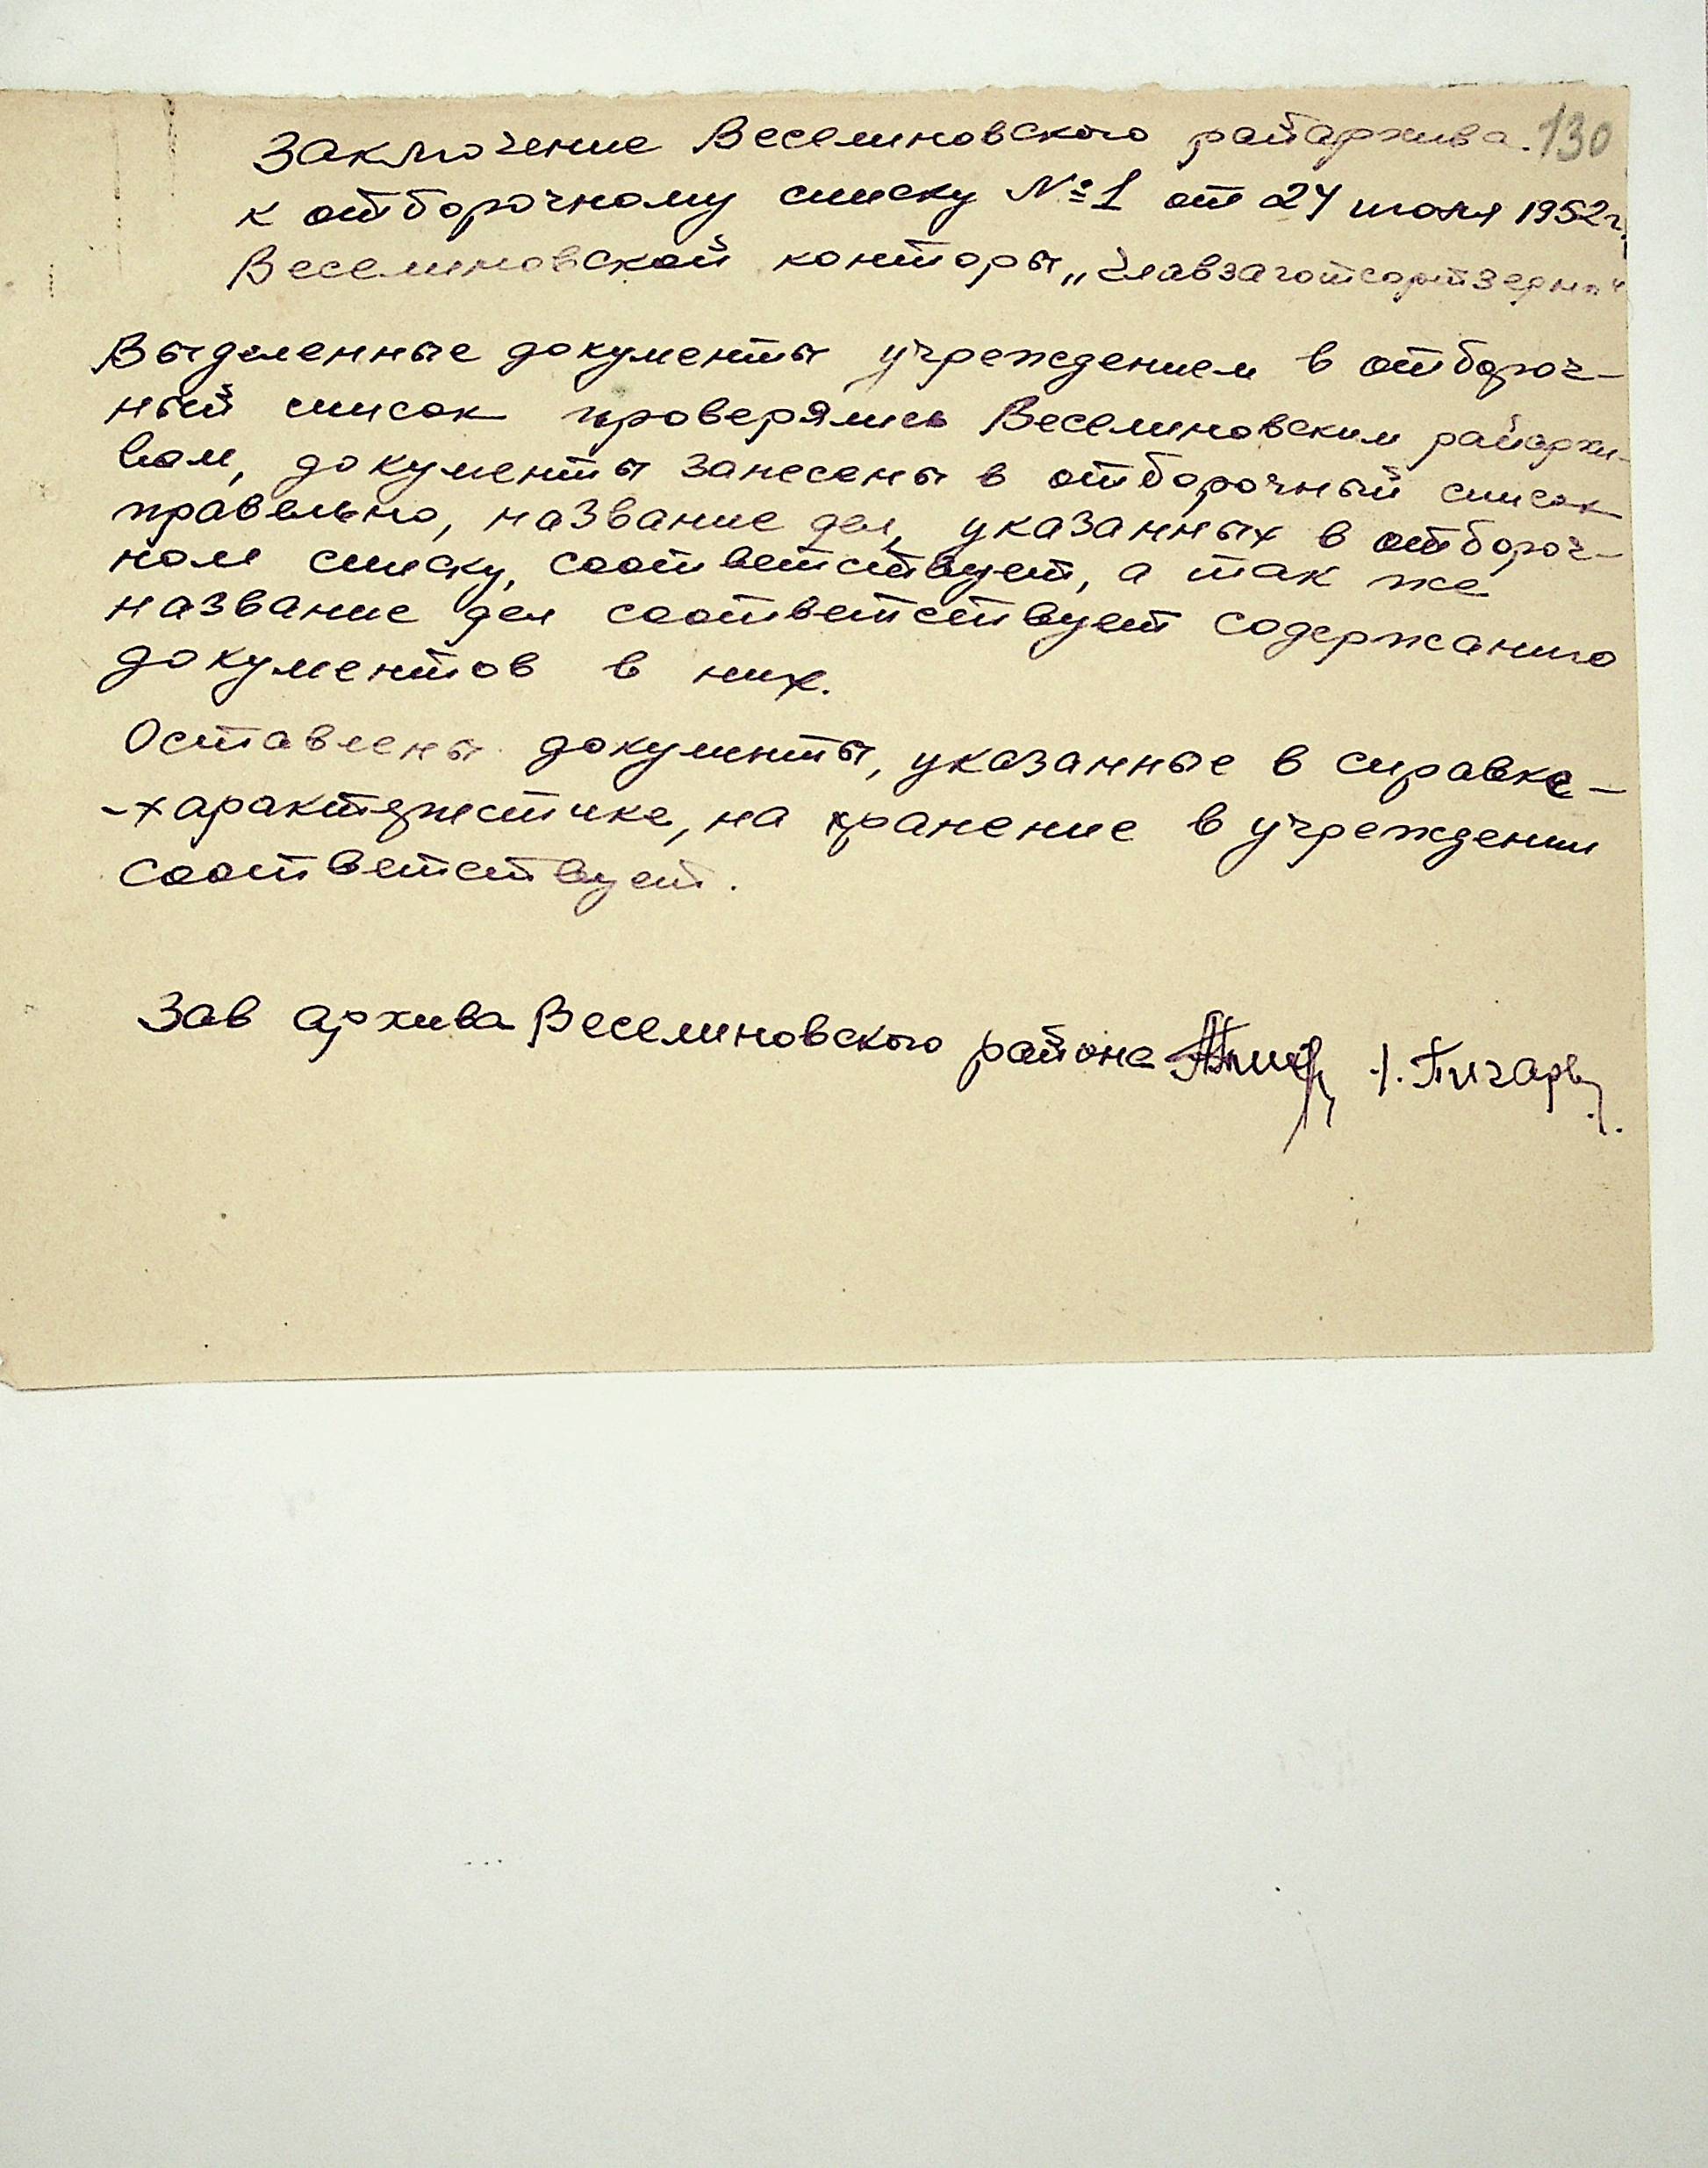 Заключение Веселиновского райархива. 130
к отборочному списку №1 от 24 июня 1952г.
Веселиновской конторы „Главзаготсортзерно“
Выделенные документы учреждением в отбороч-
ный список проверялись Веселиновским райархи-
вом, документы занесены в отборочный список
правельно, название дел, указанных в отбороч-
ном списку, соответствует, а так же
название дел соответствует содержанию
документов в них.
Оставлены документы, указанные в справке-
-характеристике, на хранение в учреждении
соответствует.
Зав архива Веселиновского района